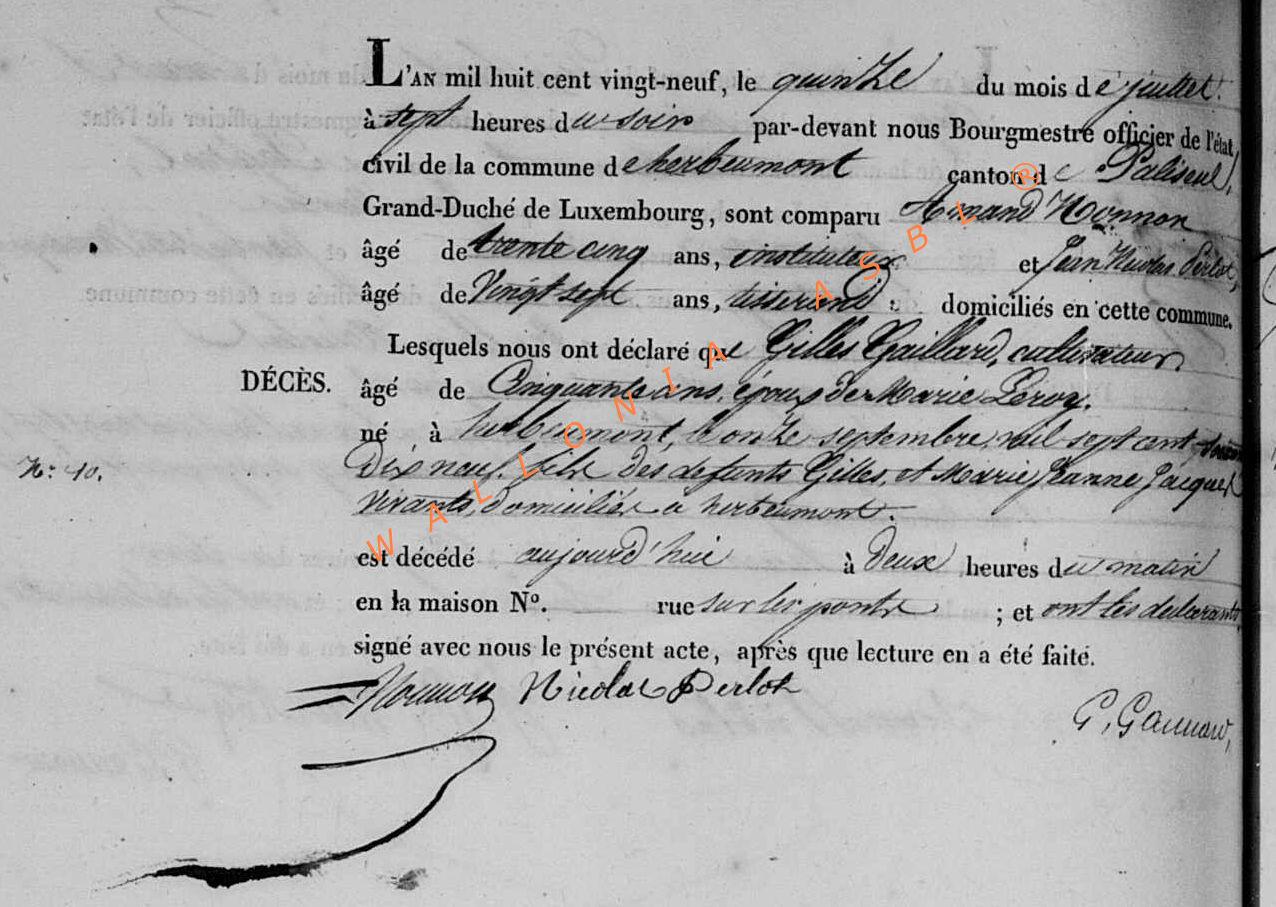 L'AN mil huit cent vingt-neuf, le quinze du mois de juillet.
à sept heures du soir par-devant nous Bourgmestre officier de l'état
civil de la commune de herbeumont canton de Paliseul,
Grand-Duché de Luxembourg, sont comparu Armand Nonnon
âgé de trente cinq ans, instituteur, et Jean Nicolas Perlot,
âgé de Vingt sept ans, tisserand, domiciliés en cette commune.
Lesquels nous ont déclaré que Gilles Gaillard, cultivateur
DÉCÈS. âgé de Cinquante ans, époux de Marie Leroy.
né à herbeumont, le onze septembre, mil sept cent,
N.º 40. Dix neuf. fils des defunts Gilles, et Marie Jeanne Jacques
vivants, domiciliés a herbeumont.
est décédé aujourd'hui à Deux heures du matin
en la maison Nº. rue sur les ponts ; et ont les declarants
signé avec nous le présent acte, après que lecture en a été faite.
Nonnon Nicolas Perlot
WALLONIA ASBL ®